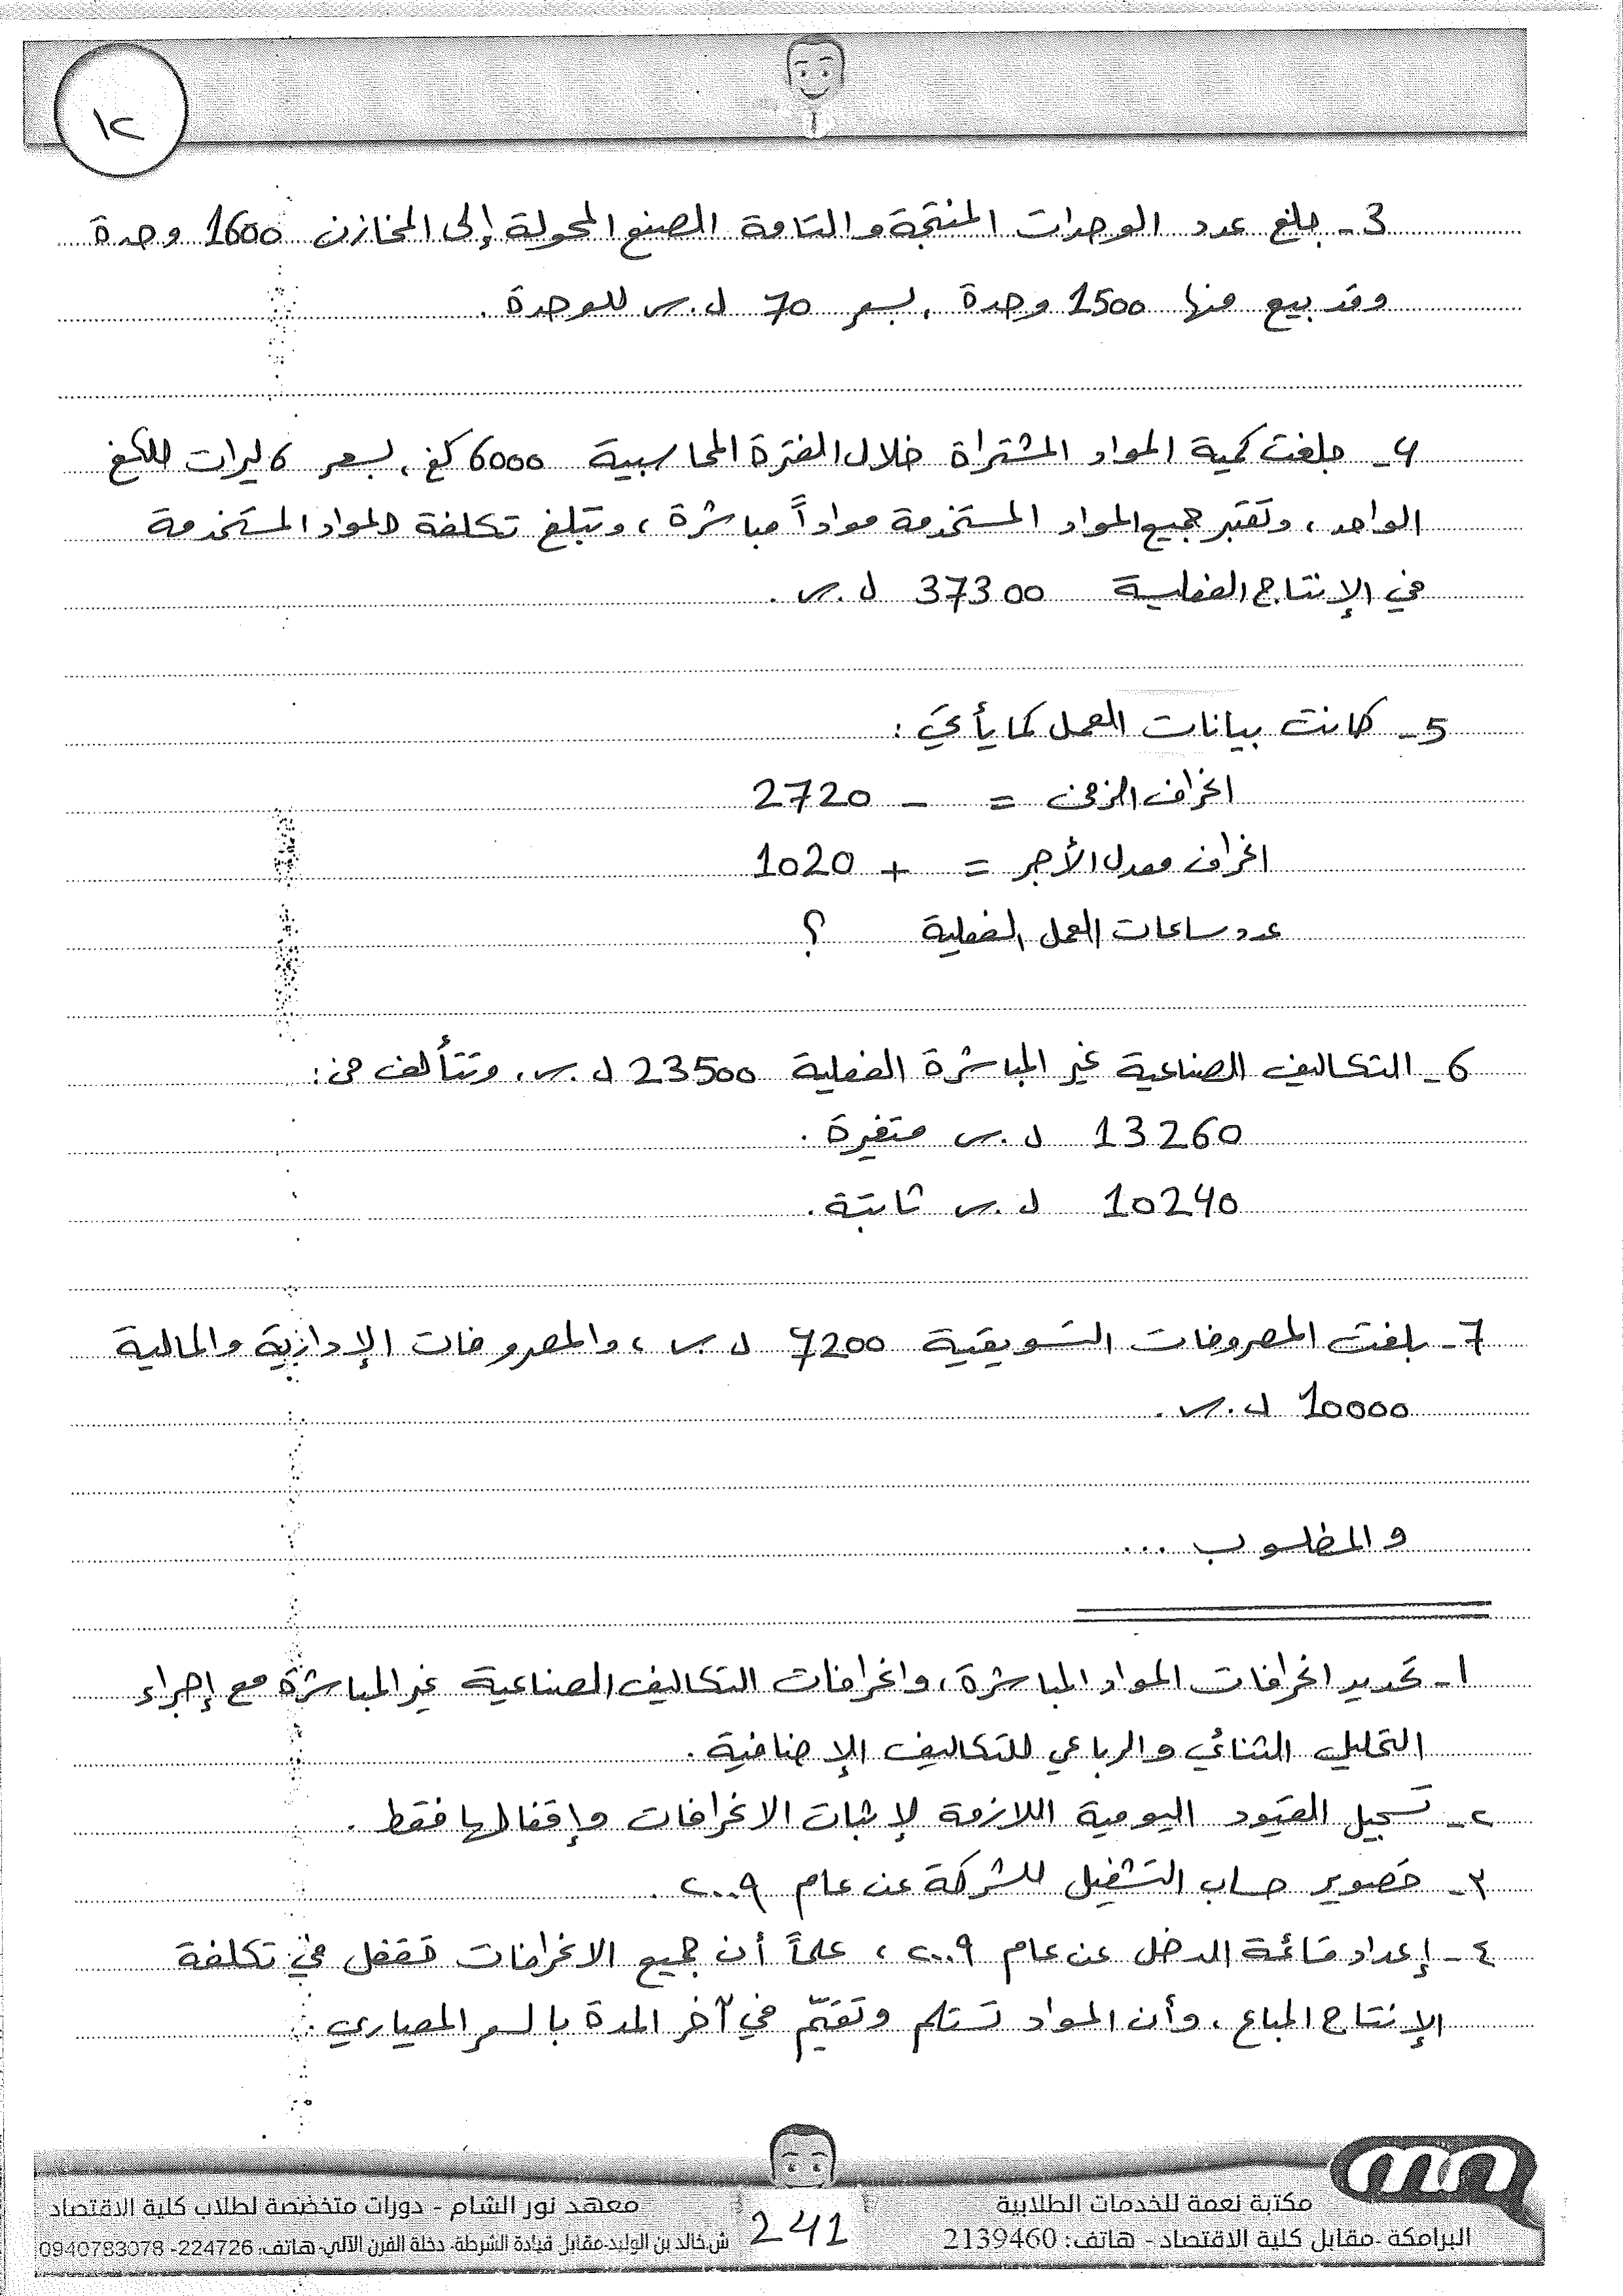 ١٢
3- بلغ عدد الوحدات المنتجة والتامة الصنع المحولة إلى المخازن 1600 وحدة
وقد بيع منها 1500 وحدة ، بسعر 70 ل.س للوحدة .
4- بلغت كمية المواد المشتراة خلال الفترة المحاسبية 6000 كغ ، بسعر 6 ليرات للكغ
الواحد ، وتعتبر جميع المواد المستخدمة مواداً مباشرة ، وتبلغ تكلفة المواد المستخدمة
في الإنتاج الفعلية 37300 ل.س .
5- كانت بيانات العمل كما يأتي :
انحراف الزمن = - 2720
انحراف معدل الأجر = + 1020
عدد ساعات العمل الفعلية ؟
6- التكاليف الصناعية غير المباشرة الفعلية 23500 ل.س ، وتتألف من :
13260 ل.س متغيرة .
10240 ل.س ثابتة .
7- بلغت المصروفات التسويقية 7200 ل.س ، والمصروفات الإدارية والمالية
10000 ل.س .
والمطلوب ...
١- تحديد انحرافات المواد المباشرة ، وانحرافات التكاليف الصناعية غير المباشرة مع إجراء
التحليل الثنائي والرباعي للتكاليف الإضافية .
٢- تسجيل القيود اليومية اللازمة لإثبات الانحرافات وإقفالها فقط .
٣- تصوير حساب التشغيل للشركة عن عام ٢٠٠٩ .
٤- إعداد قائمة الدخل عن عام ٢٠٠٩ ، علماً أن جميع الانحرافات تقفل في تكلفة
الإنتاج المباع ، وأن المواد تستلم وتقيّم في آخر المدة بالسعر المعياري .
مكتبة نعمة للخدمات الطلابية
البرامكة -مقابل كلية الاقتصاد - هاتف: 2139460
241
معهد نور الشام - دورات متخصصة لطلاب كلية الاقتصاد
ش.خالد بن الوليد-مقابل قيادة الشرطة- دخلة الفرن الآلي-هاتف: 224726- 0940783078